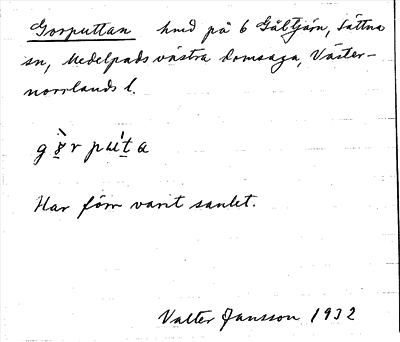 Gorputtan hmd på 6 Gåltjärn, Sättna
sn, Medelpads västra domsaga, Väster-
norrlands l.
Har förr varit sankt.
Valter Jansson 1932